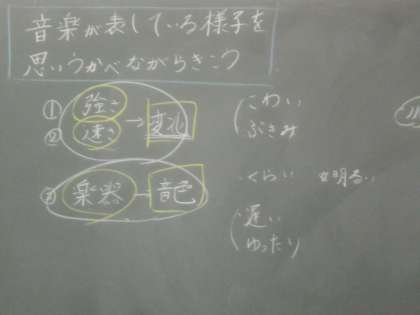 音楽が表している様子を
思いうかべながらきこう
① 強さ
② 速さ → 変化
③ 楽器 ー 音色
こわい
ぶきみ
くらい ⇔ 明るい
遅い
ゆったり